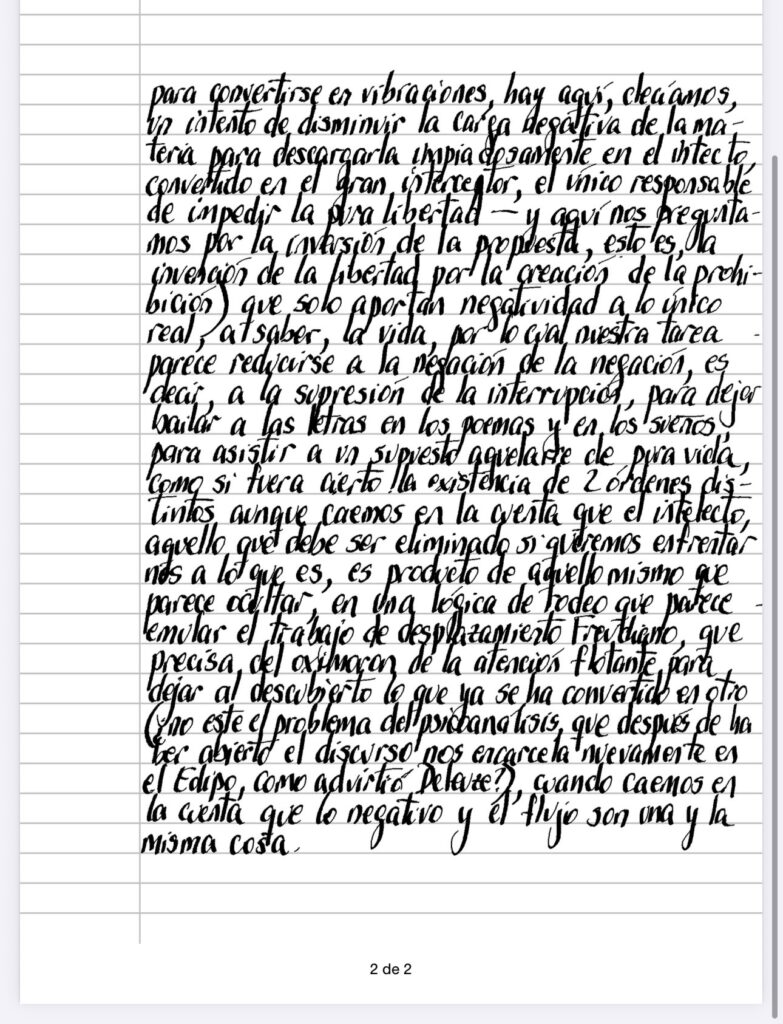 para convertirse en vibraciones, hay aquí, decíamos,
un intento de disminuir la carga negativa de la ma-
teria para descargarla impiadosamente en el intecto,
convertido en el gran interceptor, el único responsable
de impedir la pura libertad — y aquí nos pregunta-
mos por la inversión de la propuesta, esto es, la
invención de la libertad por la creación de la prohi-
bición) que solo aportan negatividad a lo único
real, a saber, la vida, por lo cual nuestra tarea
parece reducirse a la negación de la negación, es
decir, a la supresión de la interrupción, para dejar
bailar a las letras en los poemas y en los sueños,
para asistir a un supuesto aquelarre de pura vida,
como si fuera cierto la existencia de 2 órdenes dis-
tintos aunque caemos en la cuenta que el intelecto,
aquello que debe ser eliminado si queremos enfrentar
nos a lo que es, es producto de aquello mismo que
parece ocultar, en una lógica de rodeo que parece
emular el trabajo de desplazamiento Freudiano, que
precisa del oxímoron de la atención flotante para
dejar al descubierto lo que ya se ha convertido en otro
(y no este el problema del psicoanálisis, que después de ha
ber abierto el discurso nos encarcela nuevamente en
el Edipo, como advirtió Deleuze?), cuando caemos en
la cuenta que lo negativo y el flujo son una y la
misma cosa.
2 de 2